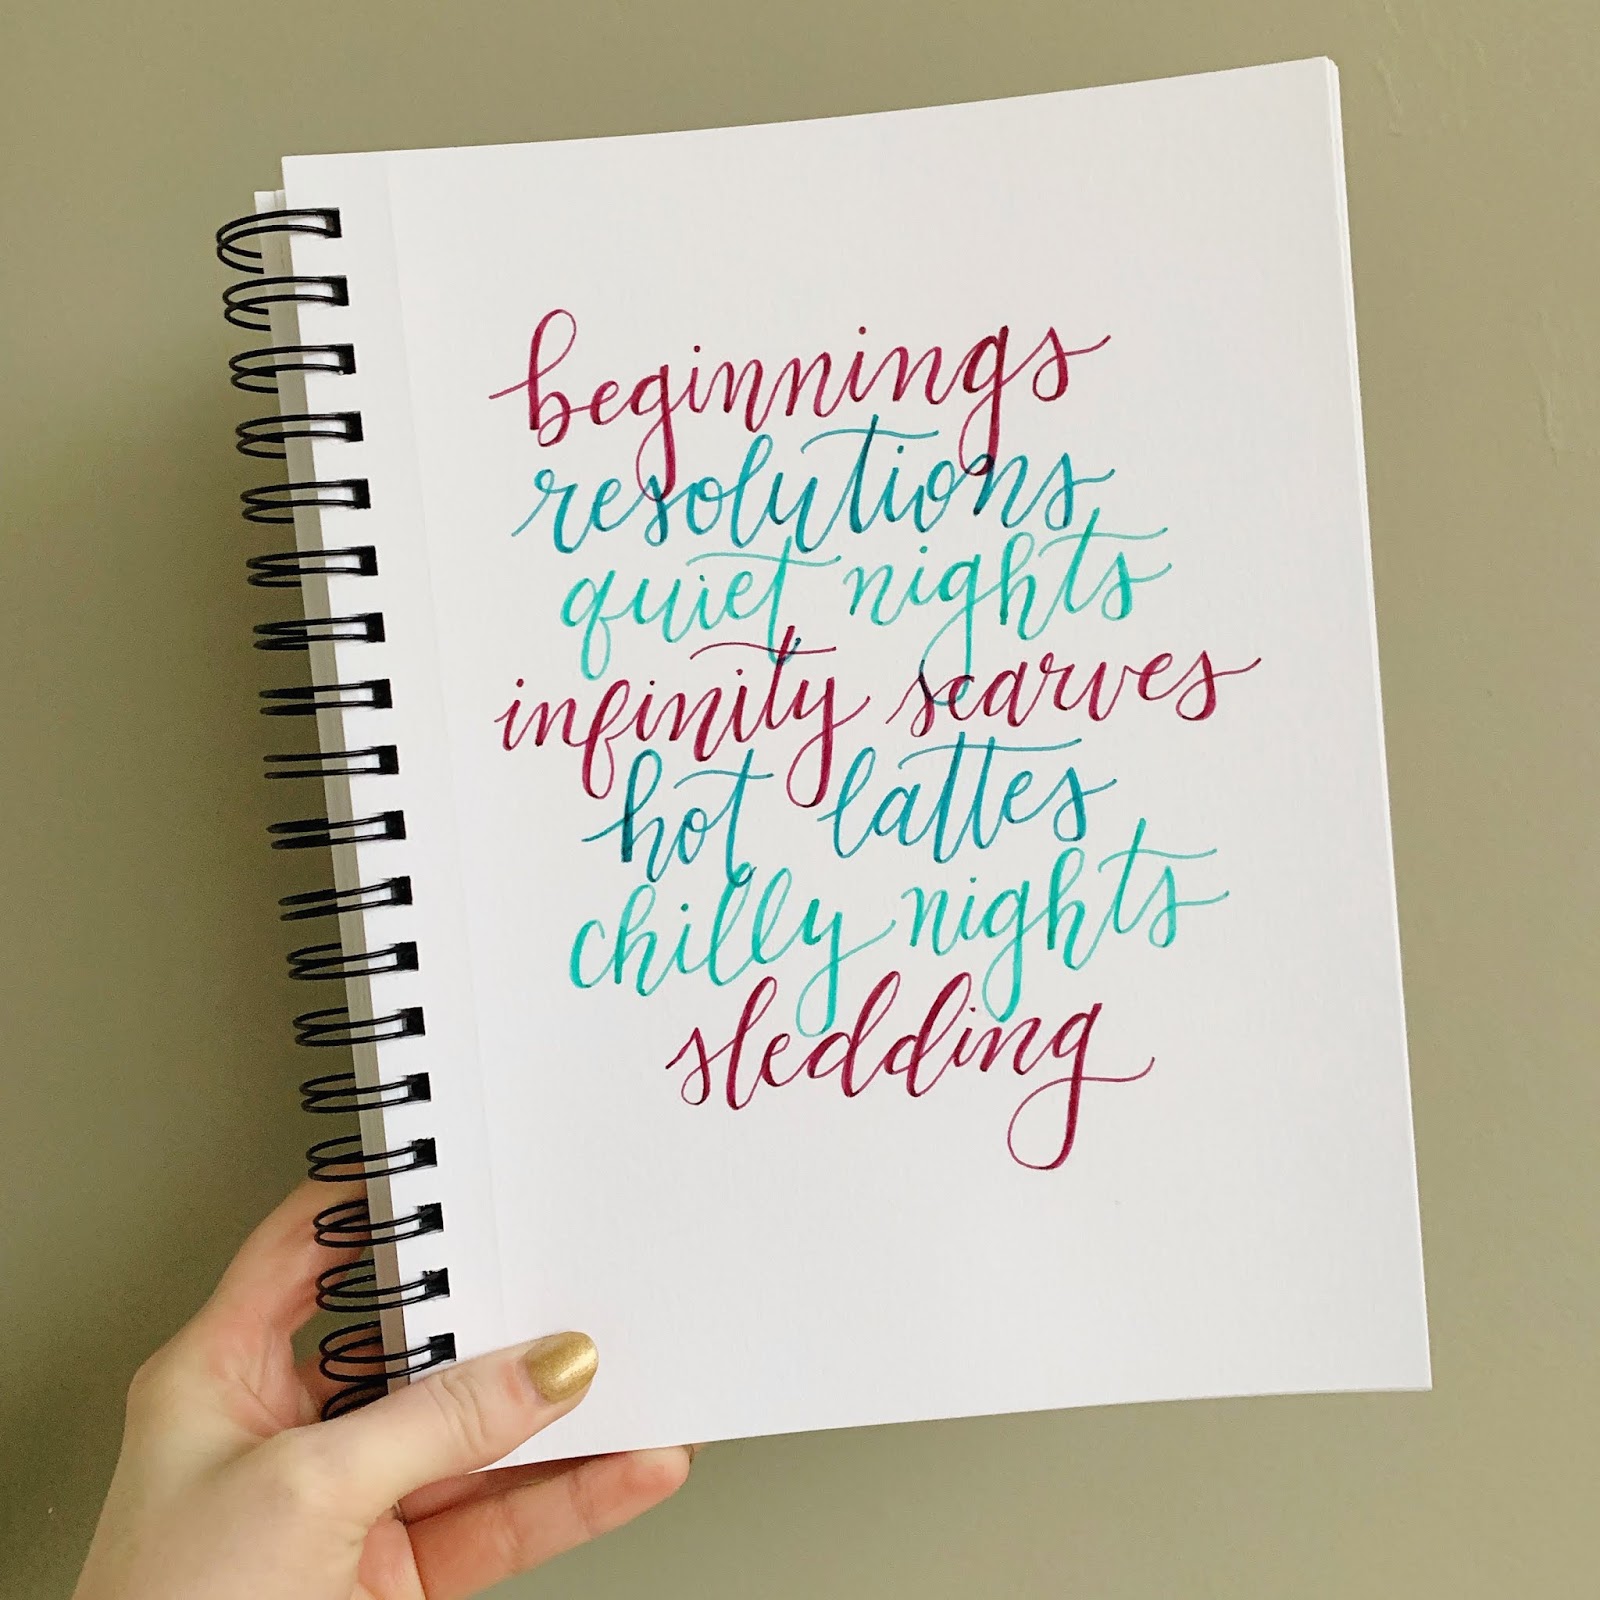 beginnings
resolutions
quiet nights
infinity scarves
hot lattes
chilly nights
sledding